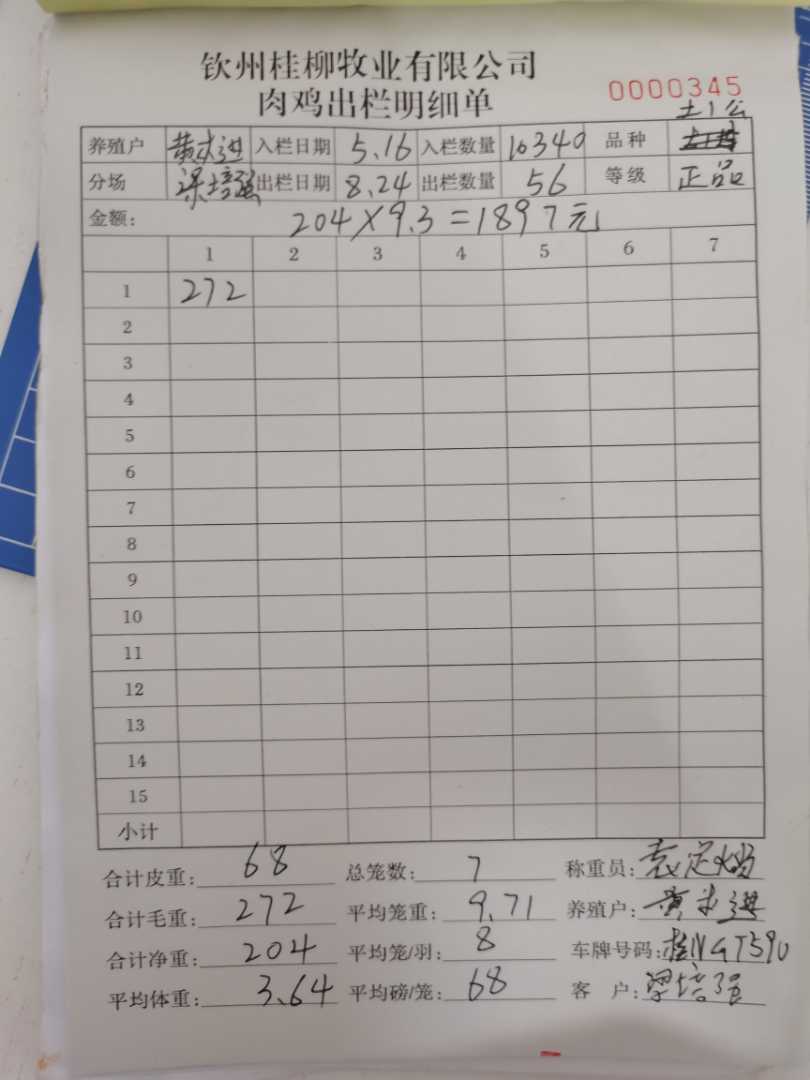 钦州桂柳牧业有限公司
肉鸡出栏明细单
0000345
土1公
养殖户 黄求进 入栏日期 5.16 入栏数量 10340 品种
分场 梁培强 出栏日期 8.24 出栏数量 56 等级 正品
金额: 204×9.3=1897元
1 2 3 4 5 6 7
1 272
2
3
4
5
6
7
8
9
10
11
12
13
14
15
小计
合计皮重: 68 总笼数: 7 称重员: 袁定
合计毛重: 272 平均笼重: 9.71 养殖户: 黄求进
合计净重: 204 平均笼/羽: 8 车牌号码: 桂NGT590
平均体重: 3.64 平均磅/笼: 68 客 户: 梁培强